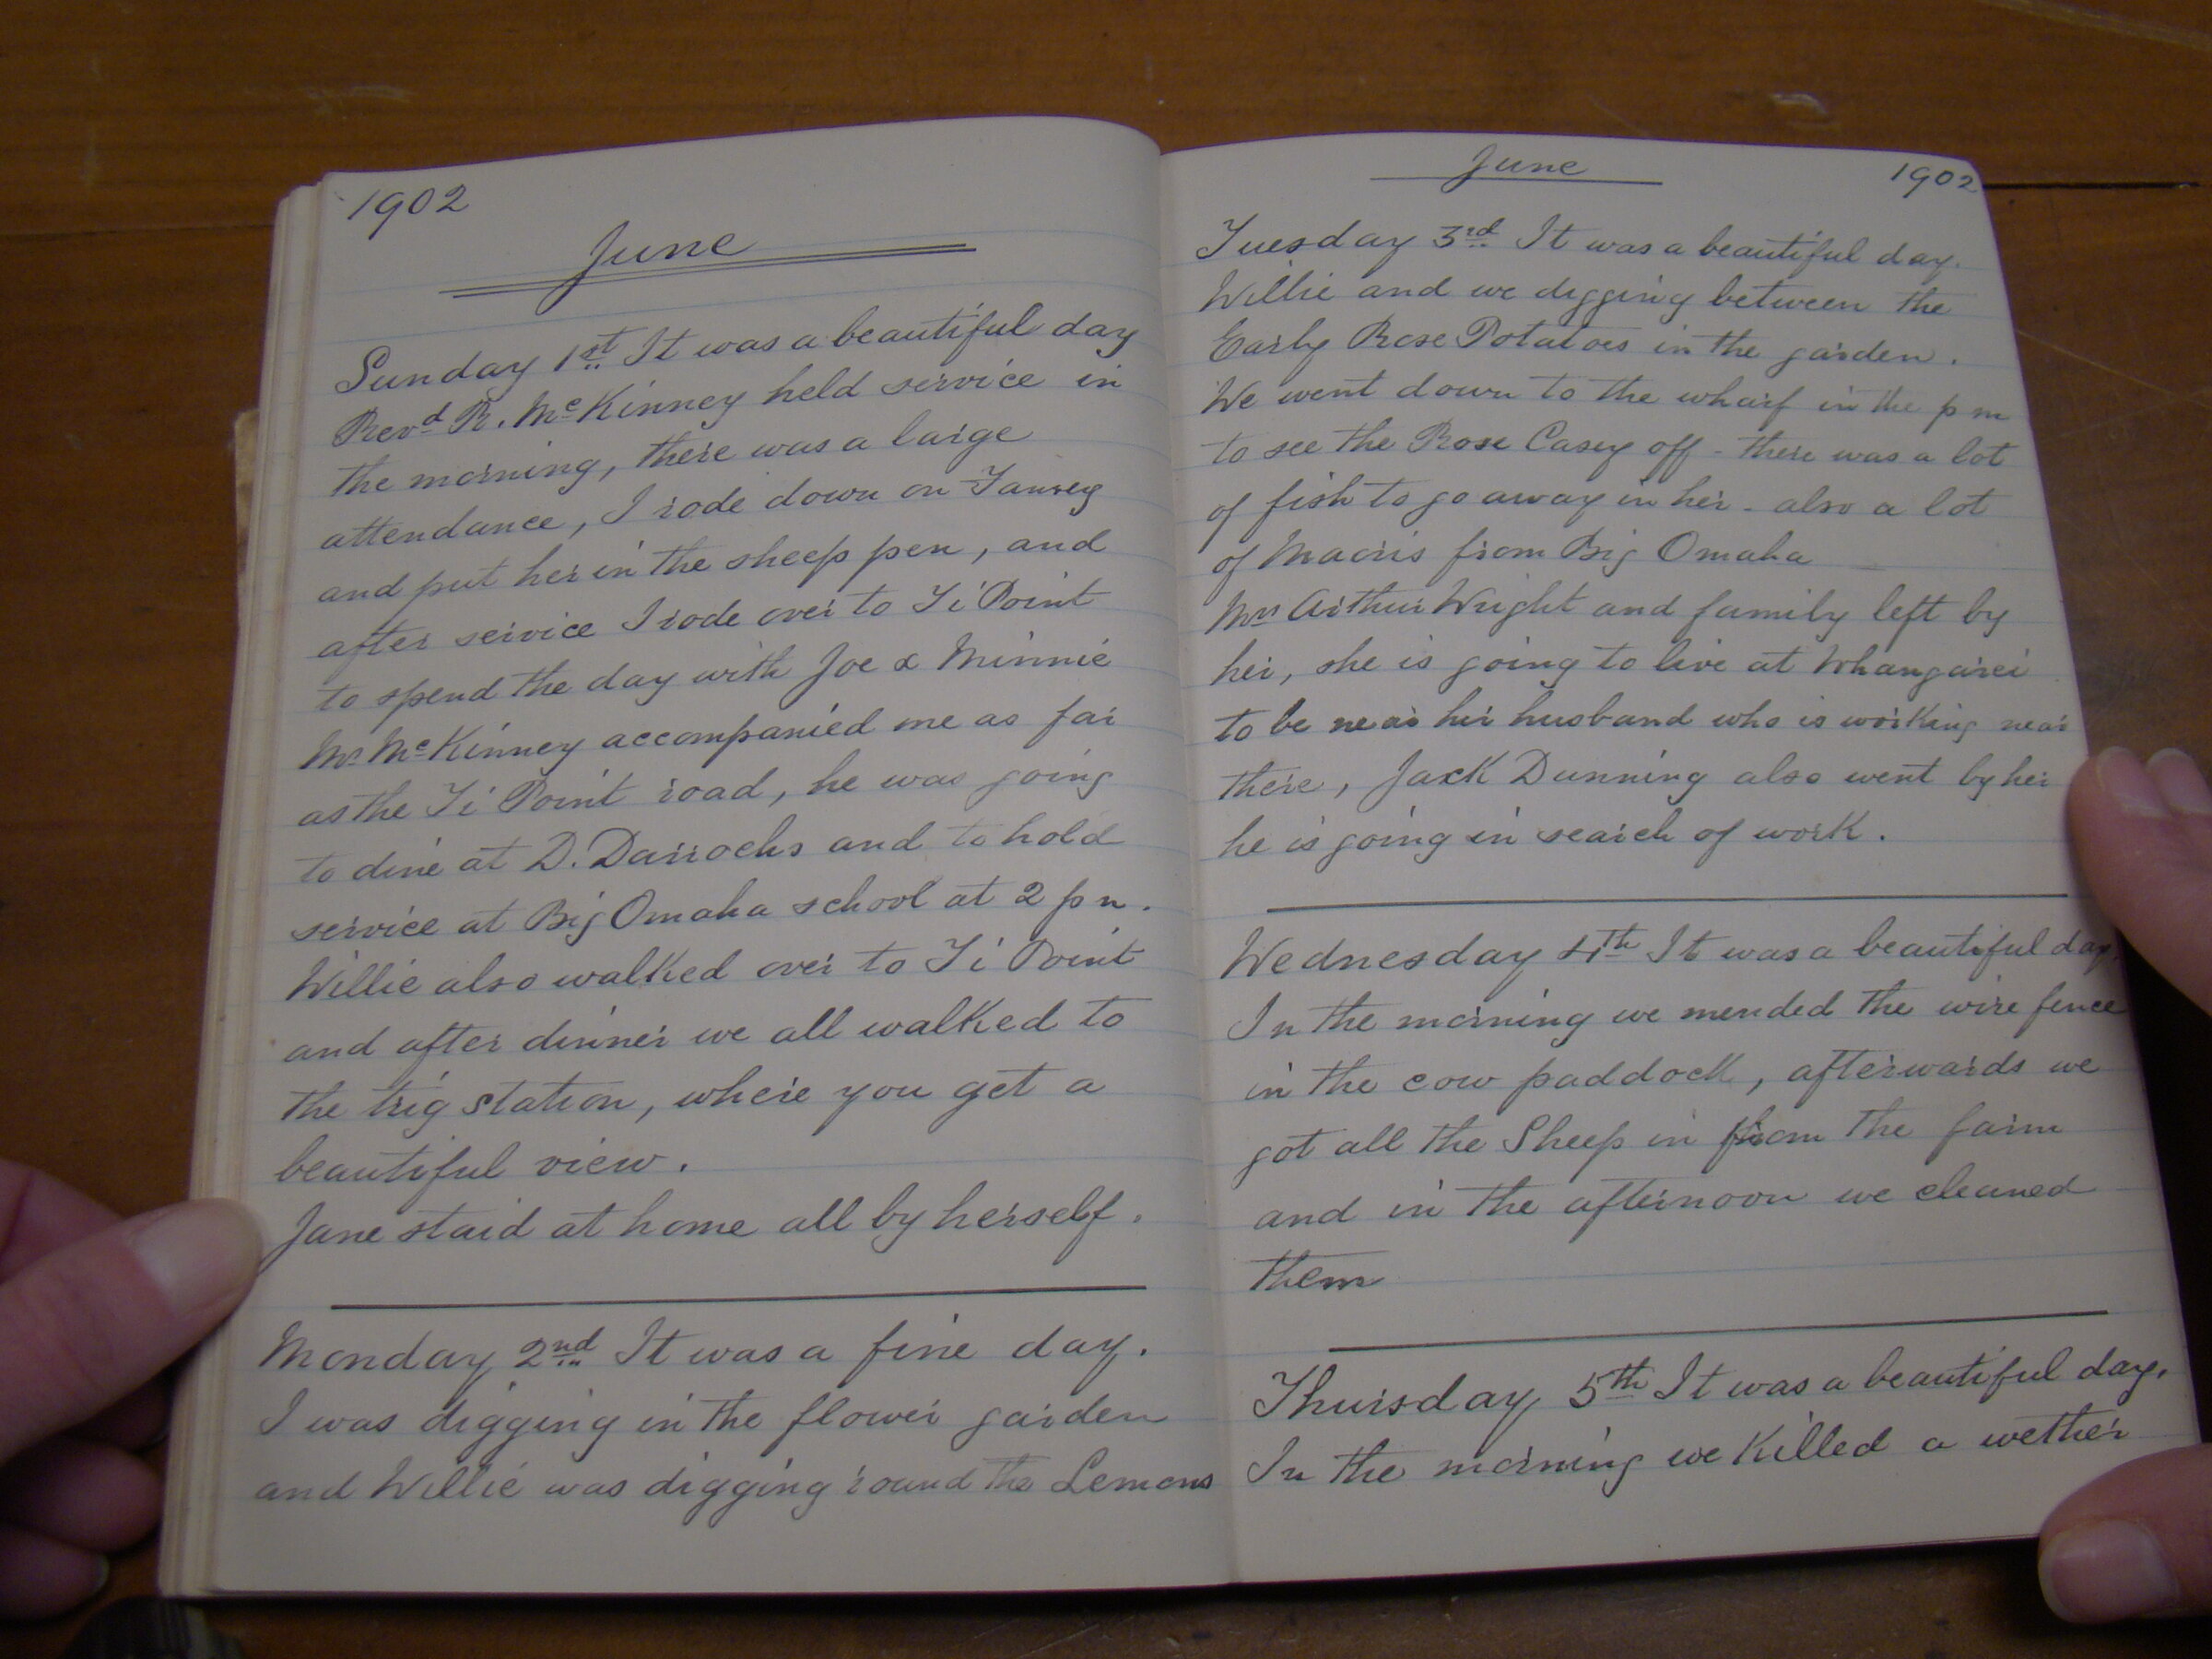 1902
June
Sunday 1st It was a beautiful day
Revd R. McKinney held service in
the morning, there was a large
attendance, I rode down on Tansey
and put her in the sheep pen, and
after service I rode over to Ti Point
to spend the day with Joe & Minnie
Mr McKinney accompanied me as far
as the Ti Point road, he was going
to dine at D. Darrochs and to hold
service at Big Omaha school at 2 p m.
Willie also walked over to Ti Point
and after dinner we all walked to
the trig station, where you get a
beautiful view.
Jane staid at home all by herself.
Monday 2nd It was a fine day.
I was digging in the flower garden
and Willie was digging round the Lemons
June 1902
Tuesday 3rd It was a beautiful day.
Willie and we digging between the
Early Rose Potatoes in the garden.
We went down to the wharf in the p m
to see the Rose Casey off - there was a lot
of fish to go away in her - also a lot
of Maoris from Big Omaha
Mrs Arthur Wright and family left by
her, she is going to live at Whangarei
to be near her husband who is working near
there, Jack Dunning also went by her
he is going in search of work.
Wednesday 4th It was a beautiful day.
In the morning we mended the wire fence
in the cow paddock, afterwards we
got all the Sheep in from the farm
and in the afternoon we cleaned
them
Thursday 5th It was a beautiful day.
In the morning we killed a wether